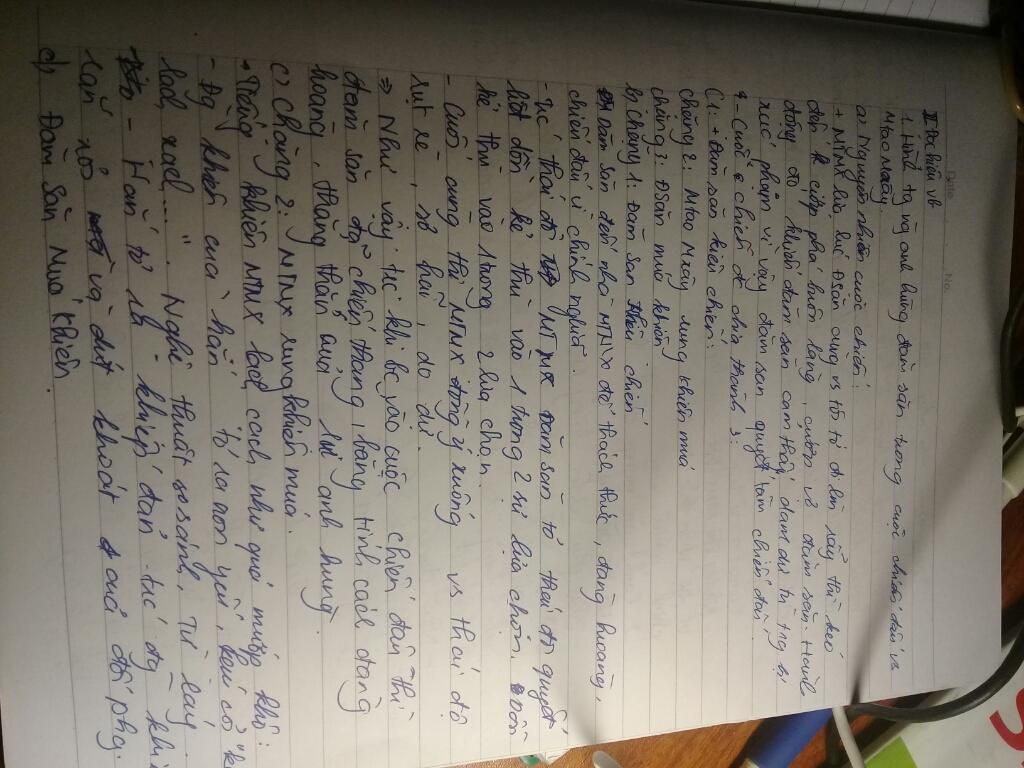 Date No.
II Đọc hiểu vb
1. Hình tg ng anh hùng đăm săn trong cuộc chiến đấu vs
Mtao Mxây.
a. Nguyên nhân cuộc chiến:
+ MTMX lừa lúc ĐSăn cùng vs tôi tớ đi lên rẫy thì kéo
đến cướp phá buôn làng, cướm vợ đăm săn. Hành
động đó khiến đam san cảm thấy danh dự tù trg bị
xúc phạm vì vậy đam san quyết tâm chiến đấu.
- Cuộc chiến đc chia thành 3:
C1: + Đăm săn khiêu chiến:
chặng 2: Mtao Mxây rung khiên múa
chặng 3: ĐSăn múa khiên
b, chặng 1: Đăm săn khiêu chiến
Đăm săn đến nhà MTMX để thách thức, đàng hoàng,
chiến đấu vì chính nghĩa.
- Lúc thái độ MTMX đăm săn tỏ thái độ quyết
liệt dồn kẻ thù vào 1 trong 2 sự lựa chọn. dồn
kẻ thù vào 1 trong 2 lựa chọn.
- Cuối cùng thì MTMX đồng ý xuống vs thái độ
rụt rè, sợ hãi, do dự.
⇒ Như vậy trc khi bc vào cuộc chiến đấu thì
đăm săn đã chiến thắng bằng tính cách đàng
hoàng, thẳng thắn của ng anh hùng.
c) Chặng 2: MTMX rung khiên múa.
+ Tiếng khiên MTMX kêu lạch xạch như quả mướp khô:
- Đg khiên của hắn tỏ ra non yếu, kém cỏi "k
lạch xạch..... Nghệ thuật so sánh, từ láy
- Hắn tỏ ra khiếp đảm trc đg khi
rắn rỏi và dứt khoát của đối phg.
d) Đăm Săn Múa khiên.